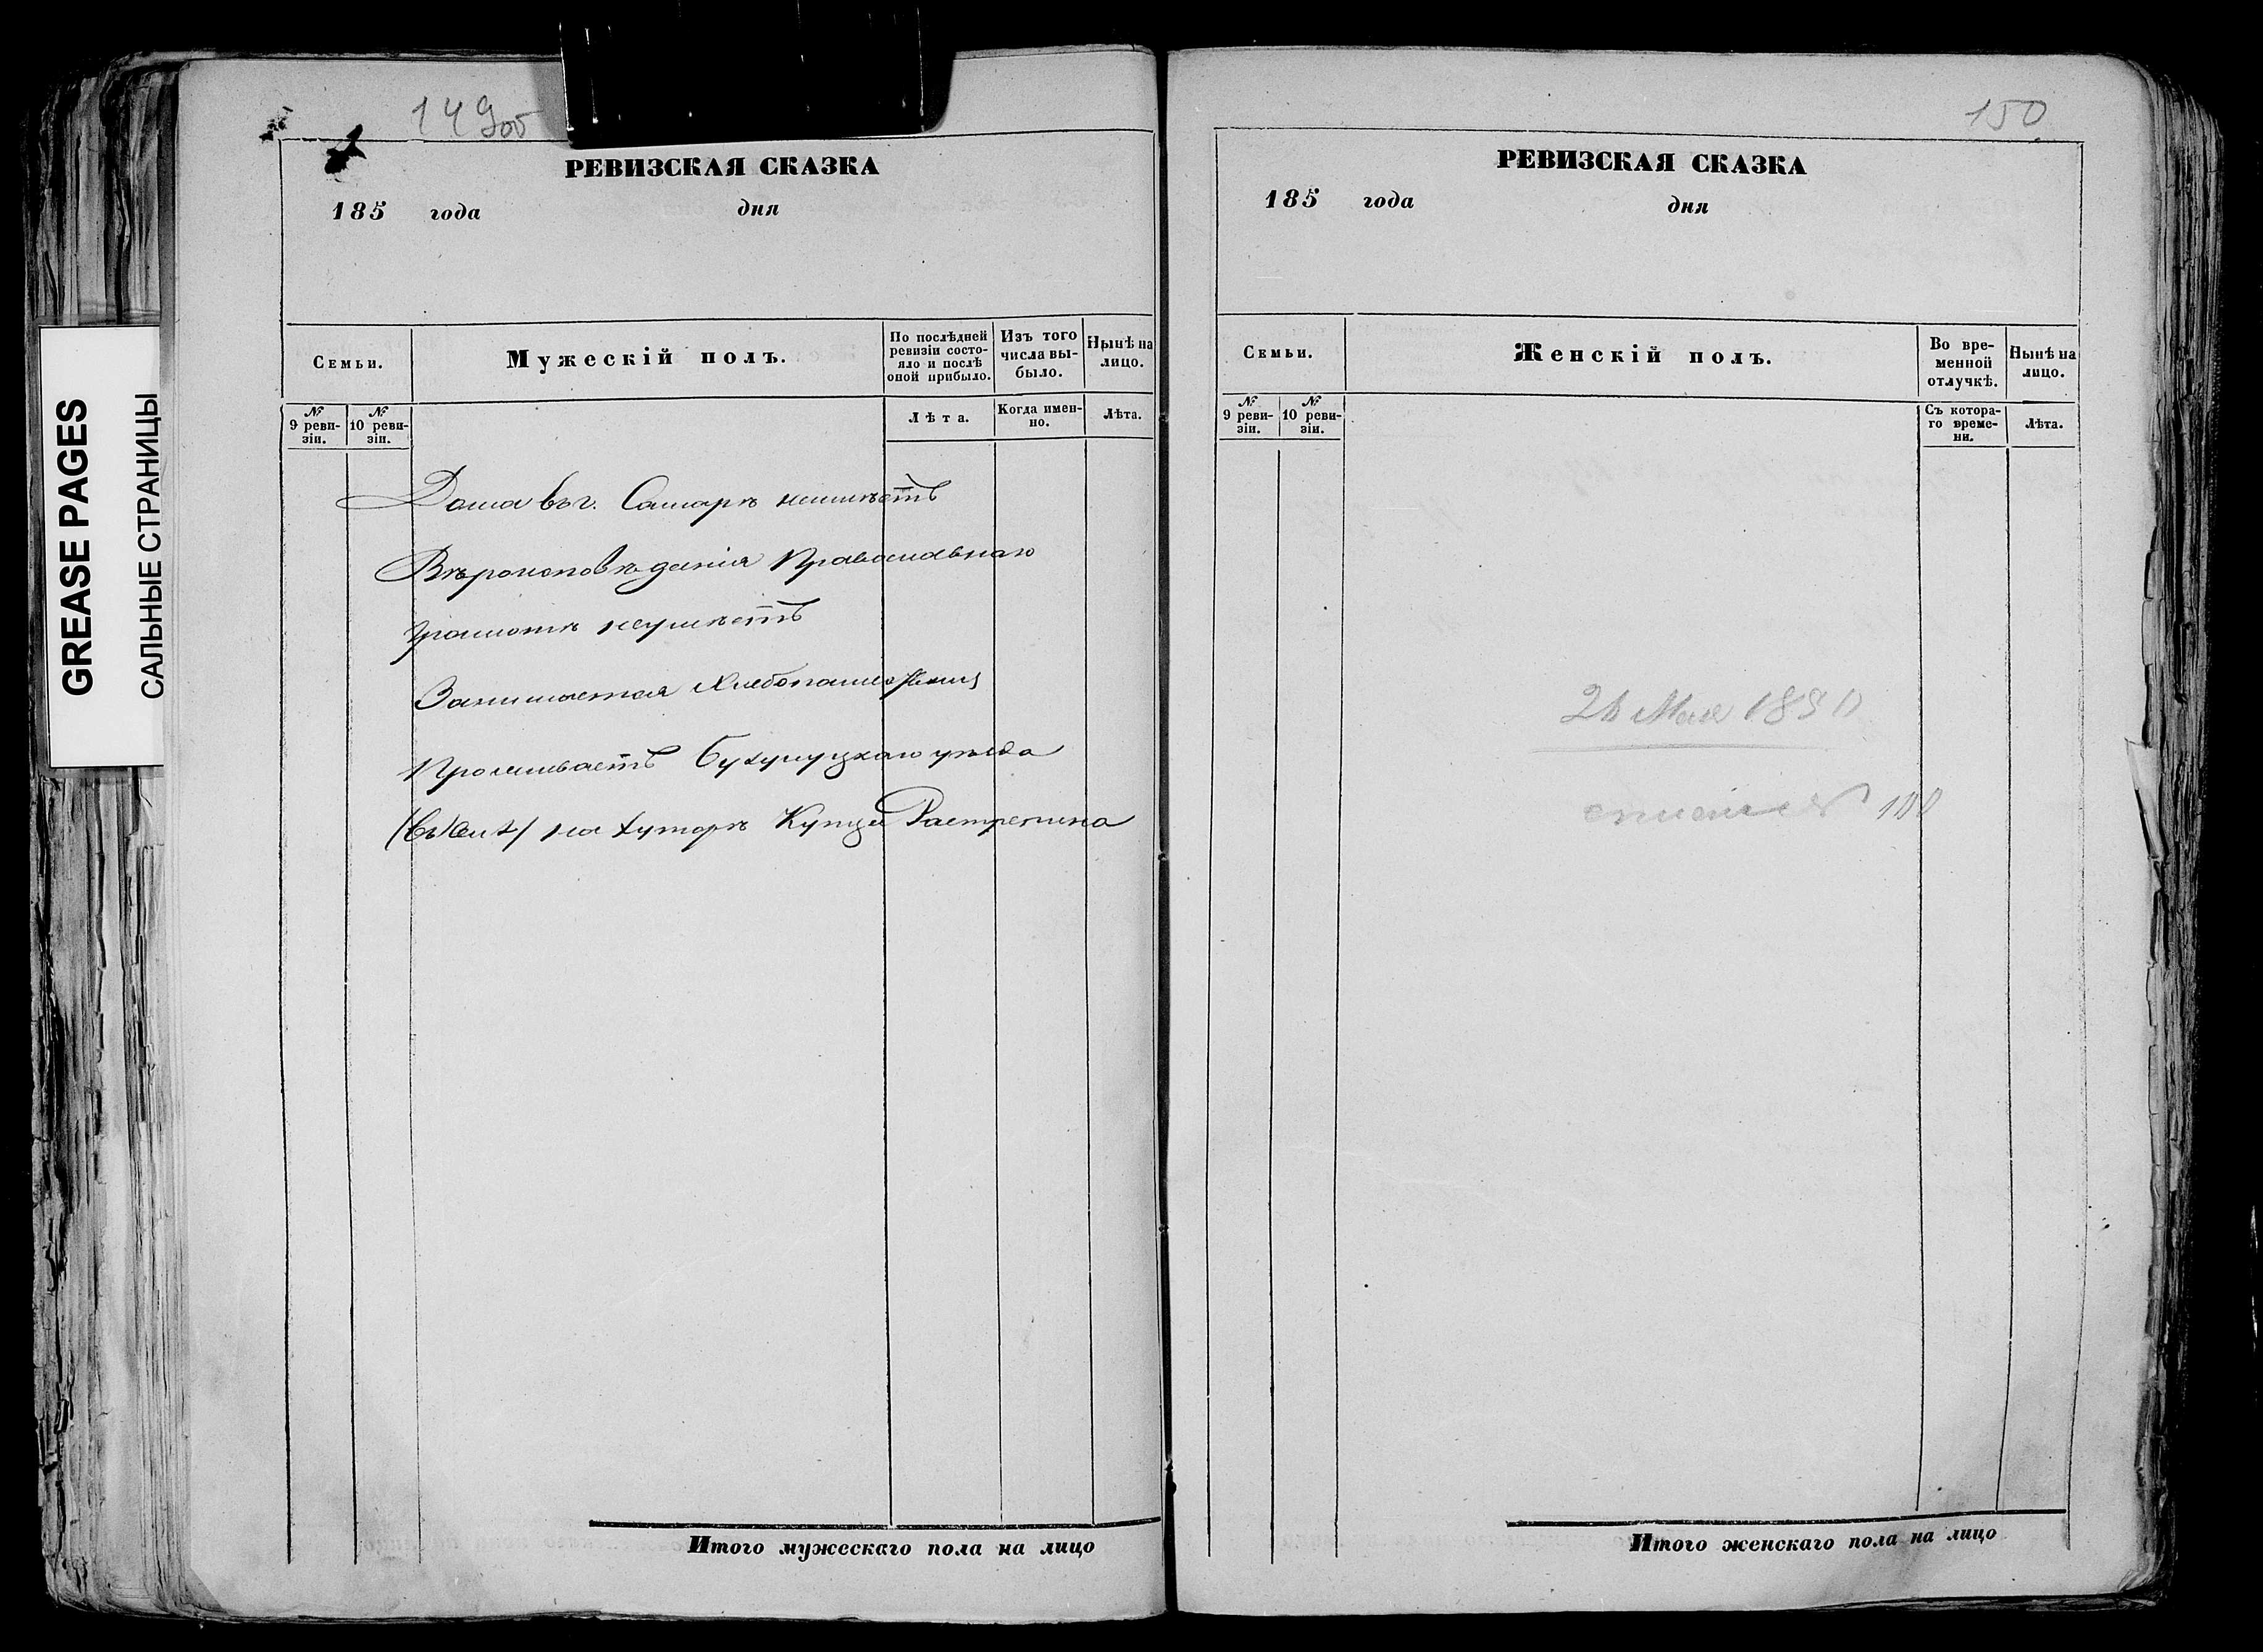 GREASE PAGES
САЛЬНЫЕ СТРАНИЦЫ
149об
РЕВИЗСКАЯ СКАЗКА
185 года дня
Семьи.
Мужескій полъ.
По послѣдней ревизіи состояло и послѣ оной прибыло.
Изъ того числа выбыло.
Нынѣ на лицо.
№ 9 ревизіи.
№ 10 ревизіи.
Лѣта.
Когда именно.
Лѣта.
Дома въ г. Самарѣ неимѣетъ
Вѣроисповѣданія Православнаго
Грамотѣ неумѣетъ
Занимается Хлебопашествомъ
Проживаетъ Бузулуцкаго уѣзда
на хуторѣ Купца Растрепина
Итого мужескаго пола на лицо
150
РЕВИЗСКАЯ СКАЗКА
185 года дня
Семьи.
Женскій полъ.
Во временной отлучкѣ.
Нынѣ на лицо.
№ 9 ревизіи.
№ 10 ревизіи.
Съ котораго времени.
Лѣта.
Мая
Итого женскаго пола на лицо